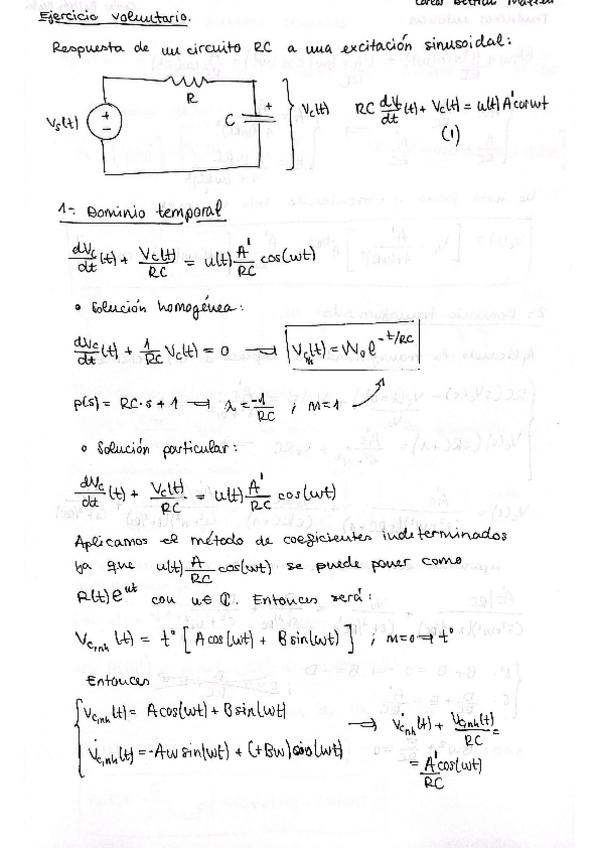 Ejercicio voluntario.
Respuesta de un circuito RC a una excitación sinusoidal:
R
Vs(t) + − C + − Vc(t) RC dVc/dt(t) + Vc(t) = u(t)A'cos ωt
(1)
1-. Dominio temporal
dVc/dt(t) + Vc(t)/RC = u(t) A'/RC cos(ωt)
• Solución homogénea:
dVc/dt(t) + 1/RC Vc(t) = 0 → Vc,h(t) = V0 e^(-t/RC)
p(s) = RC·s + 1 → λ = -1/RC ; M=1
• Solución particular:
dVc/dt(t) + Vc(t)/RC = u(t) A'/RC cos(ωt)
Aplicamos el método de coeficientes indeterminados
ya que u(t) A/RC cos(ωt) se puede poner como
R(t)e^(ut) con u∈ℂ. Entonces será:
Vc,nh(t) = t⁰ [A cos(ωt) + B sin(ωt)] ; M=0 → t⁰
Entonces
Vc,nh(t) = A cos(ωt) + B sin(ωt) → V̇c,nh(t) + Vc,nh(t)/RC =
V̇c,nh(t) = -Aω sin(ωt) + (+Bω) cos(ωt) = A'/RC cos(ωt)